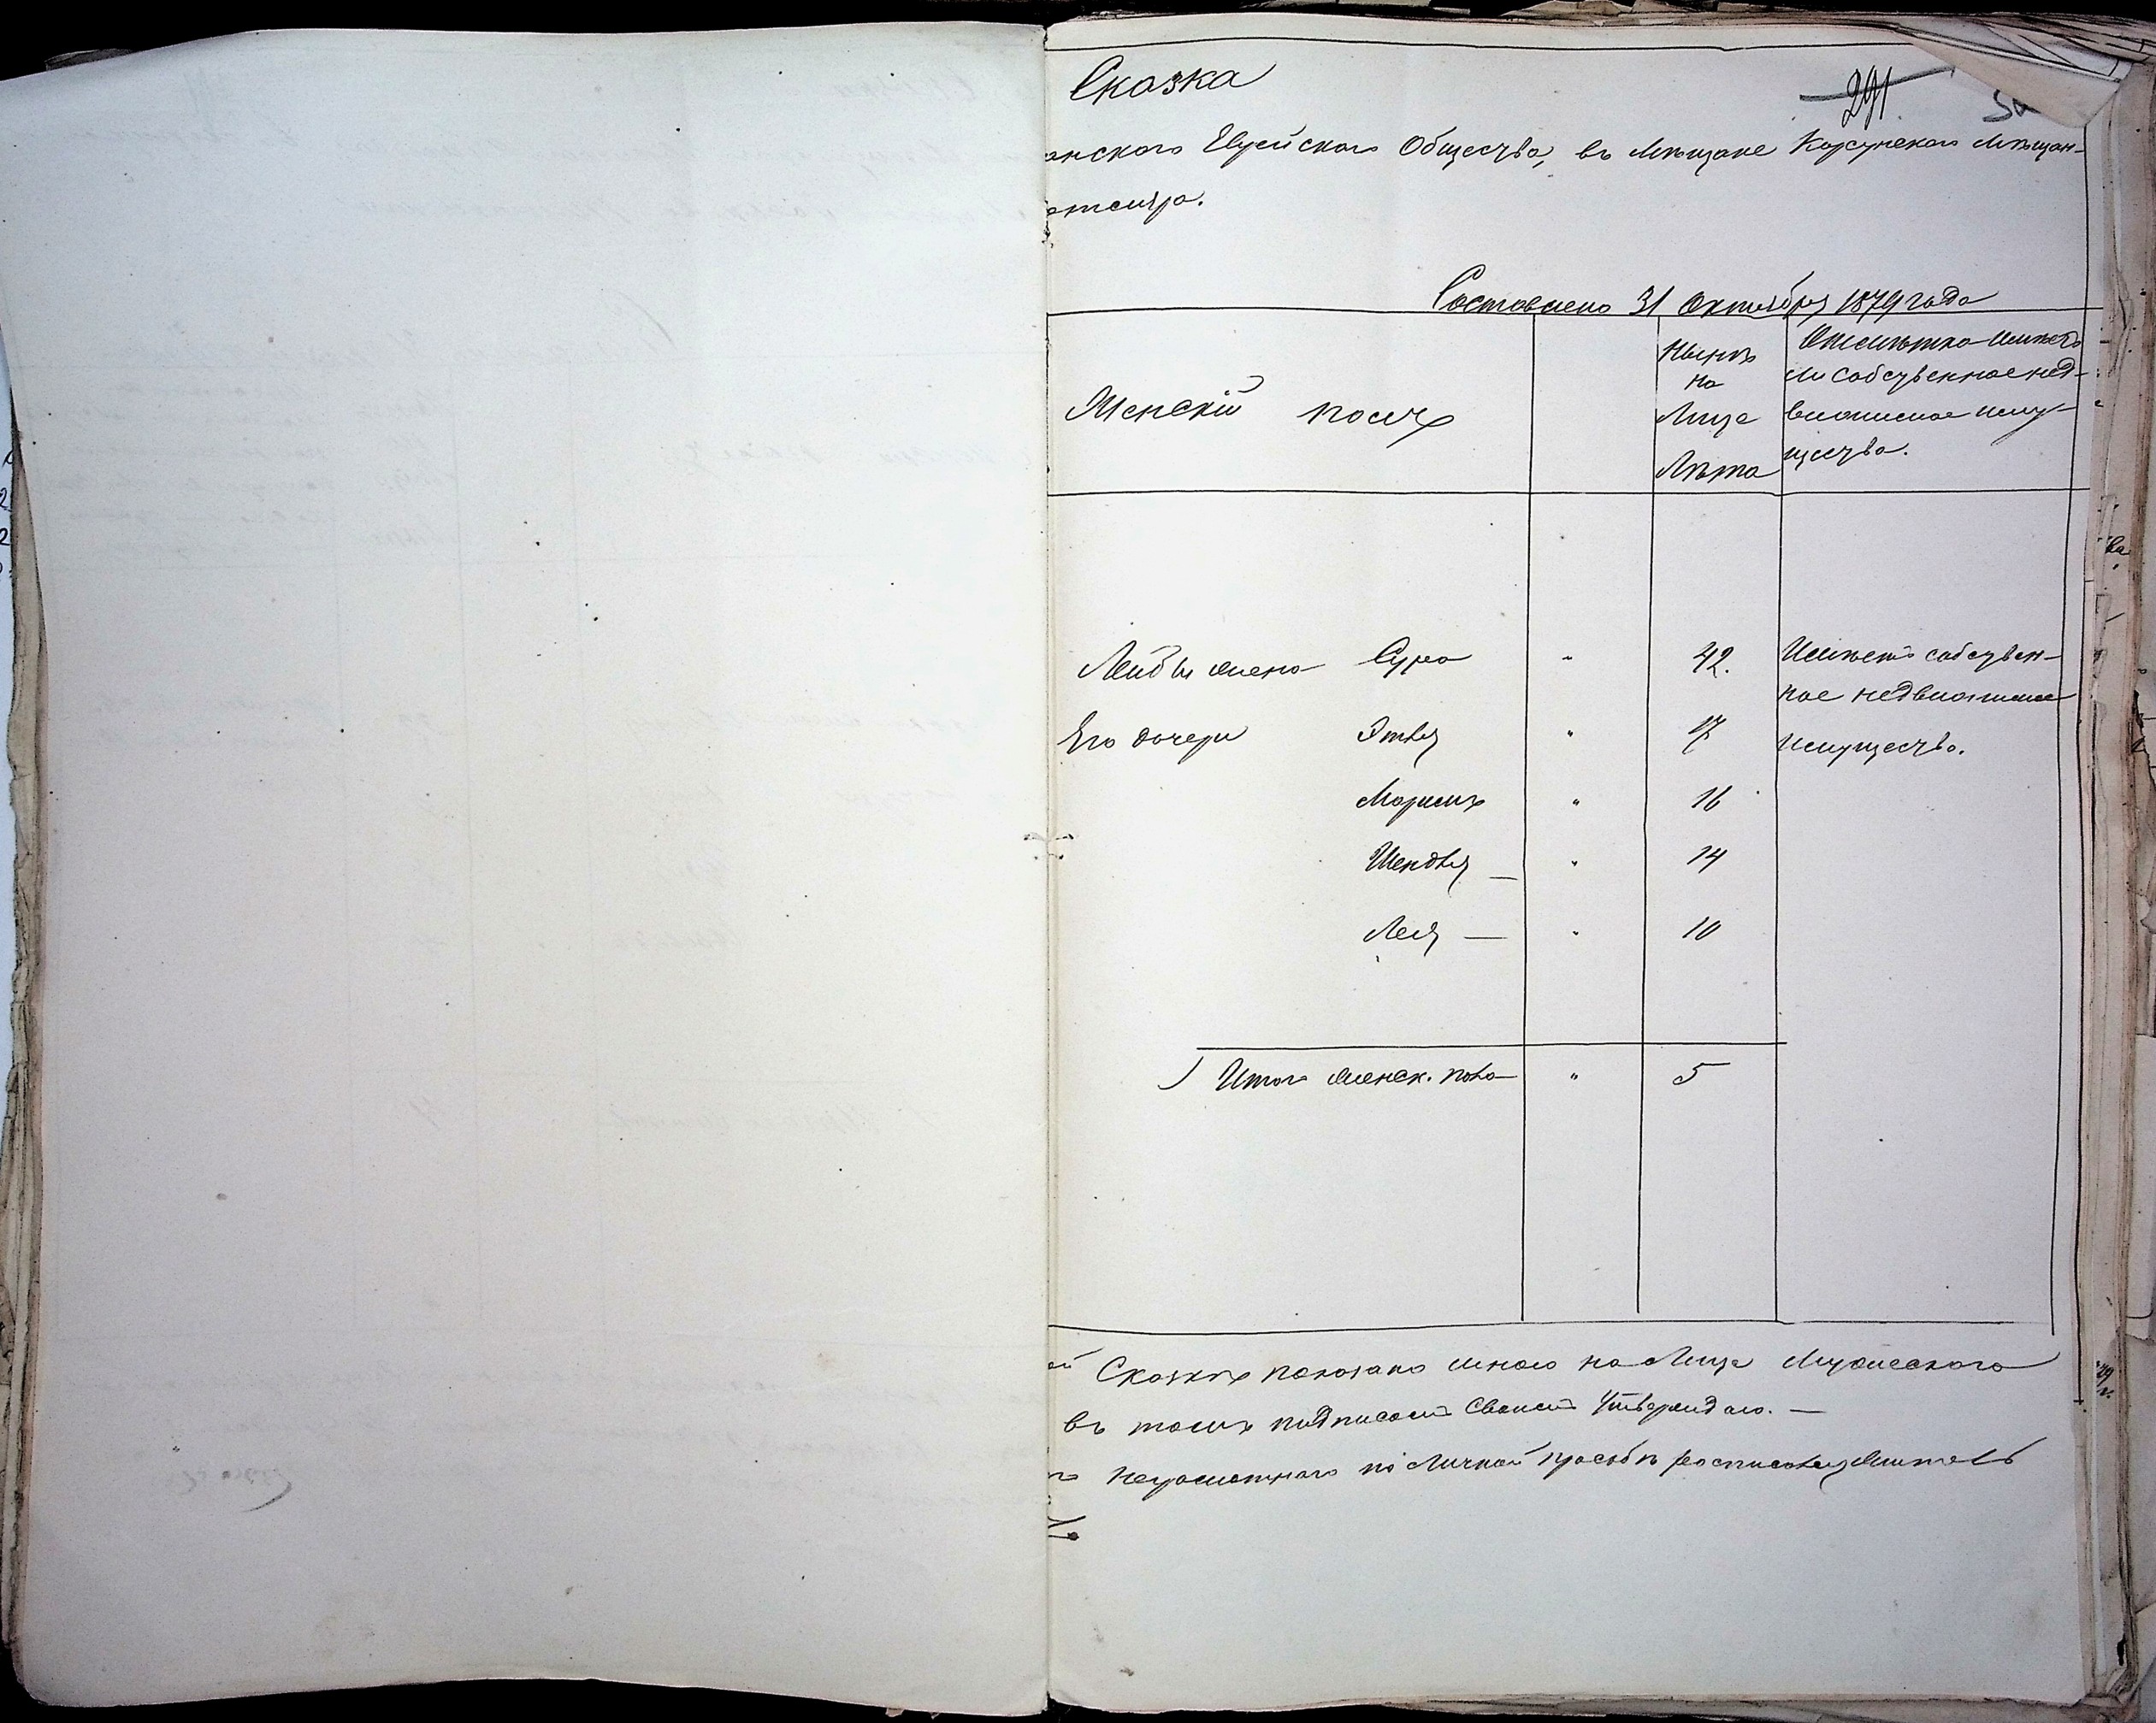 Сказка
291
анского Еврейского Общества, въ Мѣщане Корсунскаго Мѣщан-
Составлена 31 Октября 1879 года
Женскій полъ
Нынѣ
на
Лице
Лѣта
Отмѣтка Имѣетъ
ли Собственное нед-
вижимое иму-
щество.
Лейбы жена Сура " 42. Имѣетъ собствен-
ное недвижимое
Его дочери Этля " 17 имущество.
Маримъ " 16
Шендля — " 14
Лея — " 10
Итого женск. пола " 5
ей Сказкѣ показано мною на Лице Мужескаго
въ томъ подписомъ Своимъ Утверждаю. —
неграмотнаго по личной просьбѣ росписался Житель